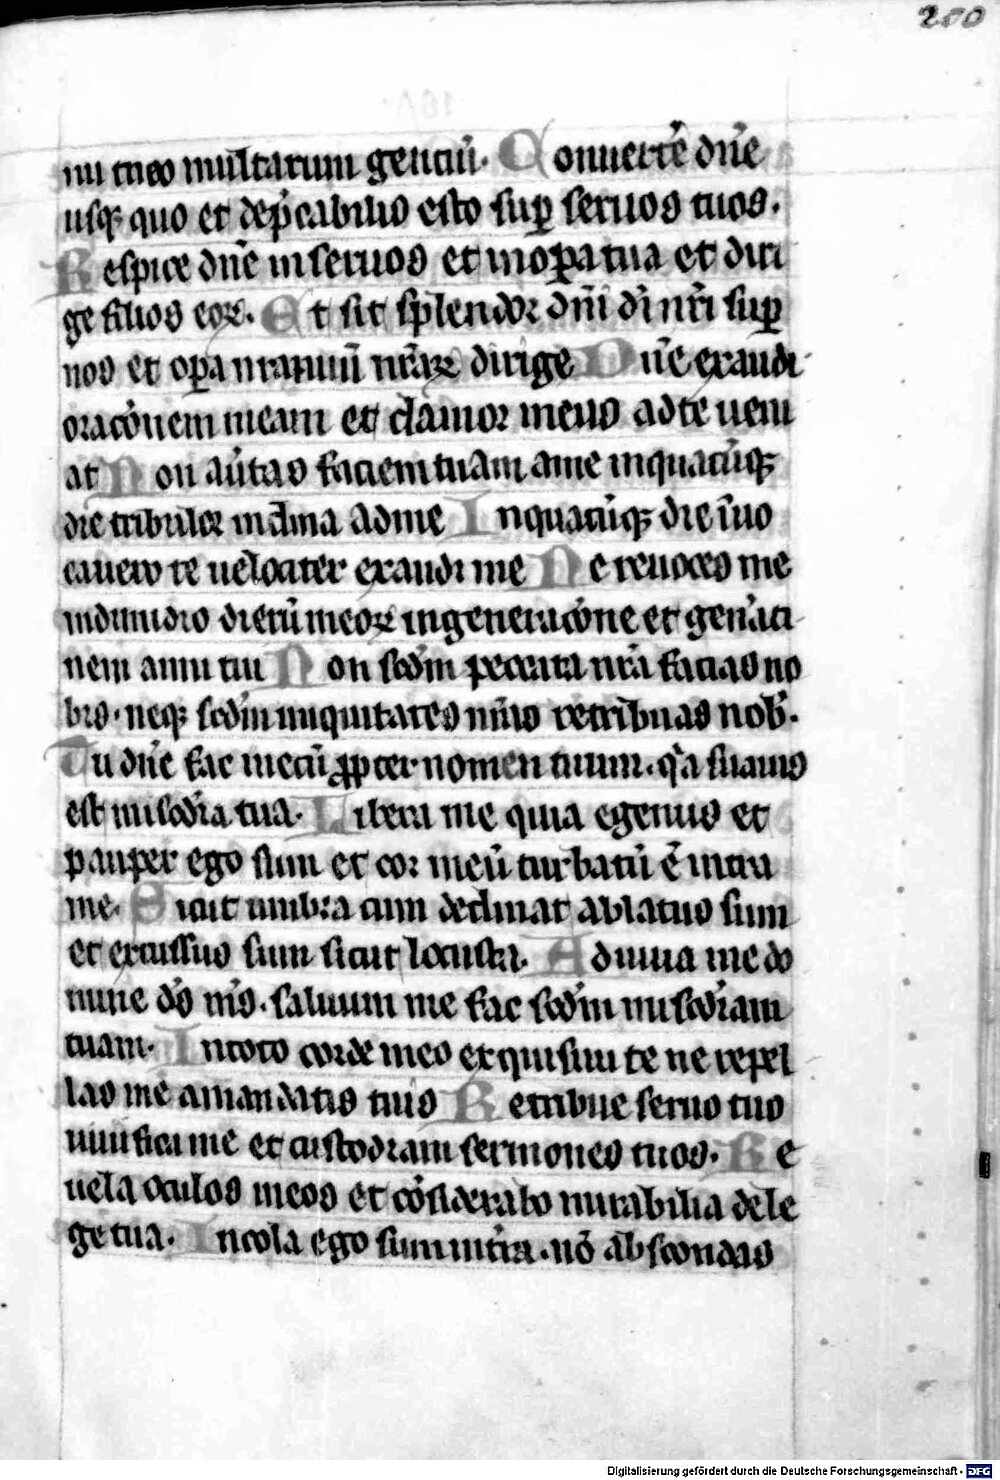 250
nu tuo multarum genciū. Conuertē dn̄e
usq̢ quo et dep̄cabilis esto sup̱ seruos tuos.
Respice dn̄e in seruos et in op̱a tua et diri
ge filios eoꝝ. Et sit splendor dn̄i di nr̄i sup̱
nos et op̱a manuū nr̄aꝝ dirige Dn̄e exaudi
orac̄onem meam et clamor meus ad te veni
at Non au̓tas faciem tuam a me in quacūq̢
die tribulor inclina ad me In quacūq̢ die īuo
cauero te uelociter exaudi me Ne reuoces me
in dimidio dierū meoꝝ in generac̄one et gen̓aci
nem anni tui Non sc̄dm peccata nr̄a facias no
bis. neq̢ sc̄dm iniquitates nr̄as retribuas nob̄.
Tu dn̄e fac mecū ꝓpter nomen tuum. q̓a suauis
est mis̄c̄dia tua. Libera me quia egenus et
pauper ego sum et cor meū turbatū ē intra
me. Sicut umbra cum declinat ablatus sum
et excussus sum sicut locusta. Adiuua me do
mine ds̄ ms̄. saluum me fac sc̄dm mis̄c̄diam
tuam. In toto corde meo exquisiui te ne repel
las me a mandatis tuis Retribue seruo tuo
uiuifica me et custodiam sermones tuos. Re
uela oculos meos et cōsiderabo mirabilia de le
ge tua. Incola ego sum in t̄ra. nō abscondas
Digitalisierung gefördert durch die Deutsche Forschungsgemeinschaft - DFG